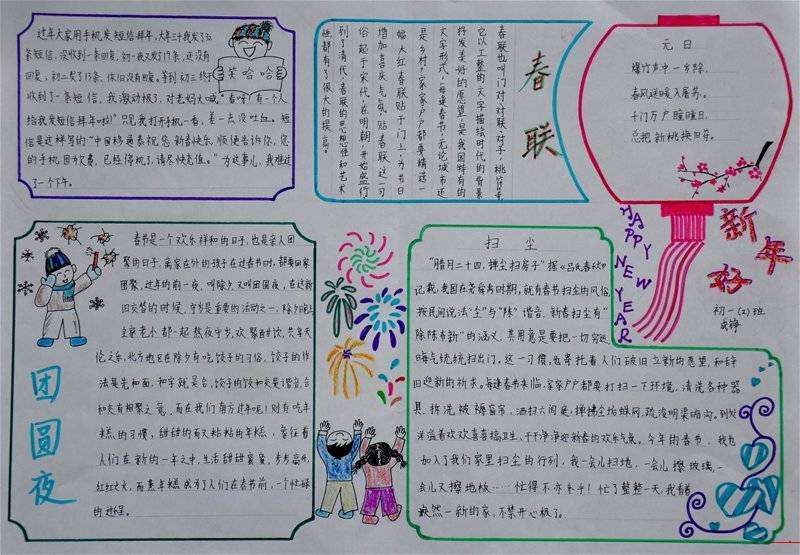 过年大家用手机发短信拜年,大年三十我发了22
条短信,没收到一条回复,初一我又发了19条,还没有
回复,初二发了13条,依旧没有回复。等到初三终于
收到了一条短信,我激动极了,对老妈大喊:"看呀!有一个人
给我发短信拜年啦!"只见我打开手机一看,差一点没吐血。短
信是这样写的"中国移动恭祝您新春快乐,顺便告诉你,您
的手机因为欠费,已经停机了,请尽快充值。"为这事儿,我难过
了一个下午。
笑哈哈
春联
春联也叫门对、对联、对子、桃符等,
它以工整的文字描绘时代的背景,
抒发美好的愿望,是我国特有的
文字形式,每逢春节,无论城市还
是乡村,家家户户都要精选一
幅大红春联贴于门上,为节日
增加喜庆气氛。贴春联这一习
俗起于宋代,在明朝开始盛行,
到了清代,春联的思想性和艺术
性都有了很大的提高。
元日
爆竹声中一岁除,
春风送暖入屠苏。
千门万户曈曈日,
总把新桃换旧符。
HAPPY NEW YEAR
新年好
初一(2)班
团圆夜
春节是一个欢乐祥和的日子,也是亲人团
聚的日子,离家在外的孩子在过春节时,都要回家
团聚,过年的前一夜,叫除夕又叫团圆夜,在这新
旧交替的时候,守岁是重要的活动之一,除夕晚上
全家老小都一起熬夜守岁,欢聚酣饮,共享天
伦之乐,北方地区在除夕有吃饺子的习俗,饺子的作
法是先和面,和字就是合;饺子的饺和交是谐音,合
和交有相聚之意,而在我们南方过年呢!则有吃年
糕的习惯,甜甜的而又粘粘的年糕,象征着
人们在新的一年之中,生活甜甜蜜蜜,步步高升,
红红火火,而蒸年糕成了人们在春节前,一个忙碌
的过程。
扫尘
"腊月二十四,掸尘扫房子"据《吕氏春秋》
记载,我国在尧舜时期,就有春节扫尘的风俗,
按民间说法"尘"与"陈"谐音,新春扫尘有"
除陈布新"的涵义,其用意是要把一切穷运、
晦气统统扫出门。这一习惯,也寄托着人们破旧立新的愿望,和辞
旧迎新的祈求。每逢春节来临,家家户户都要打扫一下环境,清洗各种器
具,拆洗被褥窗帘,洒扫六闾庭院,掸拂尘垢蛛网,疏浚明渠暗沟。到处
洋溢着欢欢喜喜搞卫生、干干净净迎新春的欢乐气氛。今年的春节,我也
加入了我们家里扫尘的行列,我一会儿扫地,一会儿擦玻璃,一
会儿又擦地板……忙得不亦乐乎!忙了整整一天,我看着
焕然一新的家,不禁开心极了。